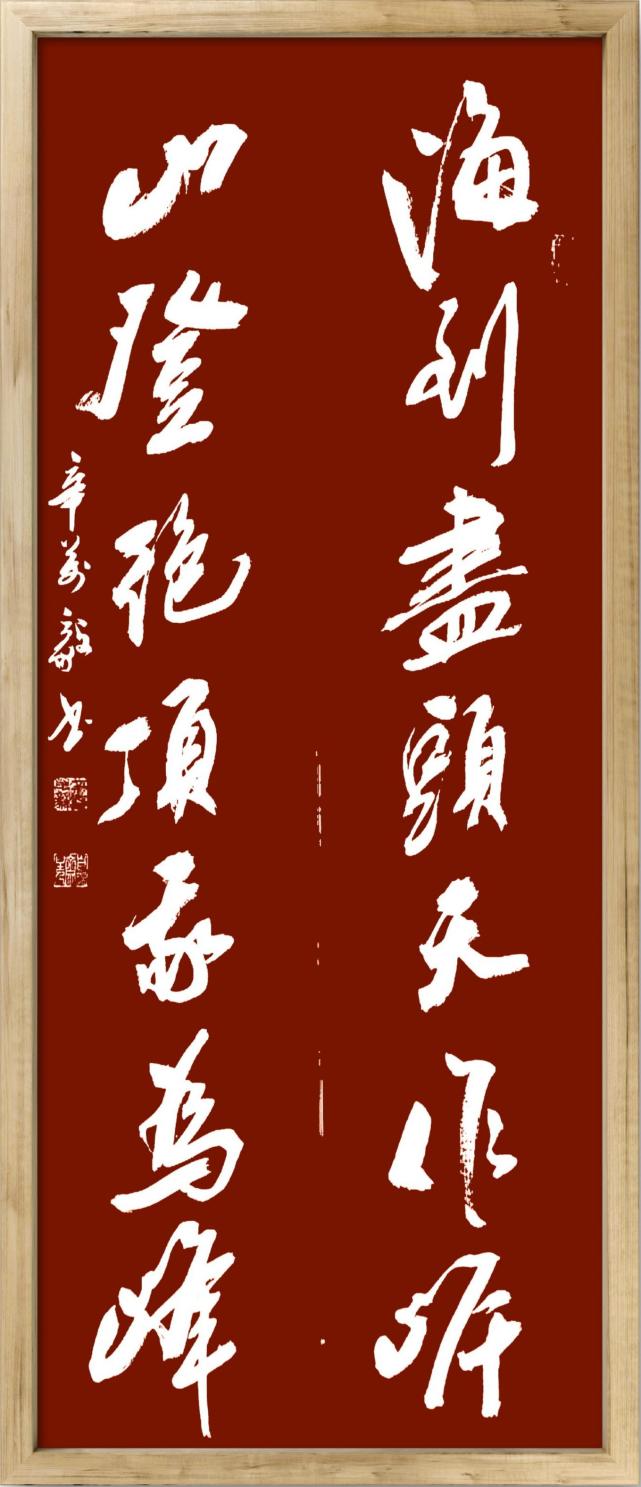 海到盡頭天作岸
山登絕頂我為峰
辛萬毅书